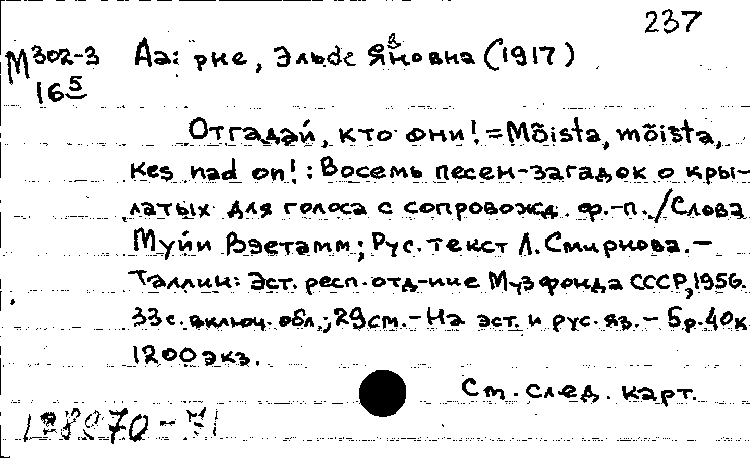 237
М302-3 Аа: рне, Эльбе Яновна (1917)
165
Отгадай, кто они! = Mõista, mõista,
kes nad on! : Восемь песен-загадок о кры-
латых для голоса с сопровожд. ф.-п. / Слова
Муйи Вээтамм; Рус. текст Л. Смирнова. -
Таллин: Эст. респ. отд-ние Музфонда СССР, 1956.
33 с. включ. обл.; 29 см. - На эст. и рус. яз. - 5р. 40к
1200 экз.
См. след. карт.